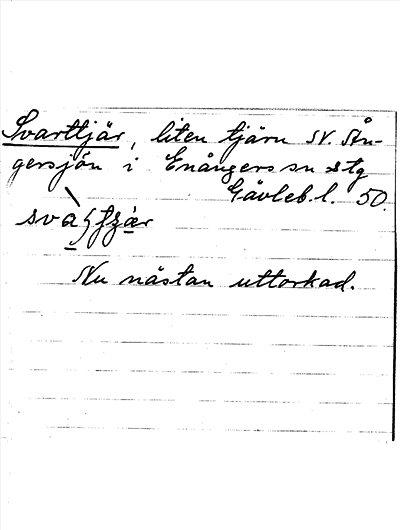 Svarttjär, liten tjärn SV. Ån-
gersjön i Enångers sn stg
Gävleb. l. 50.
Nu nästan uttorkad.